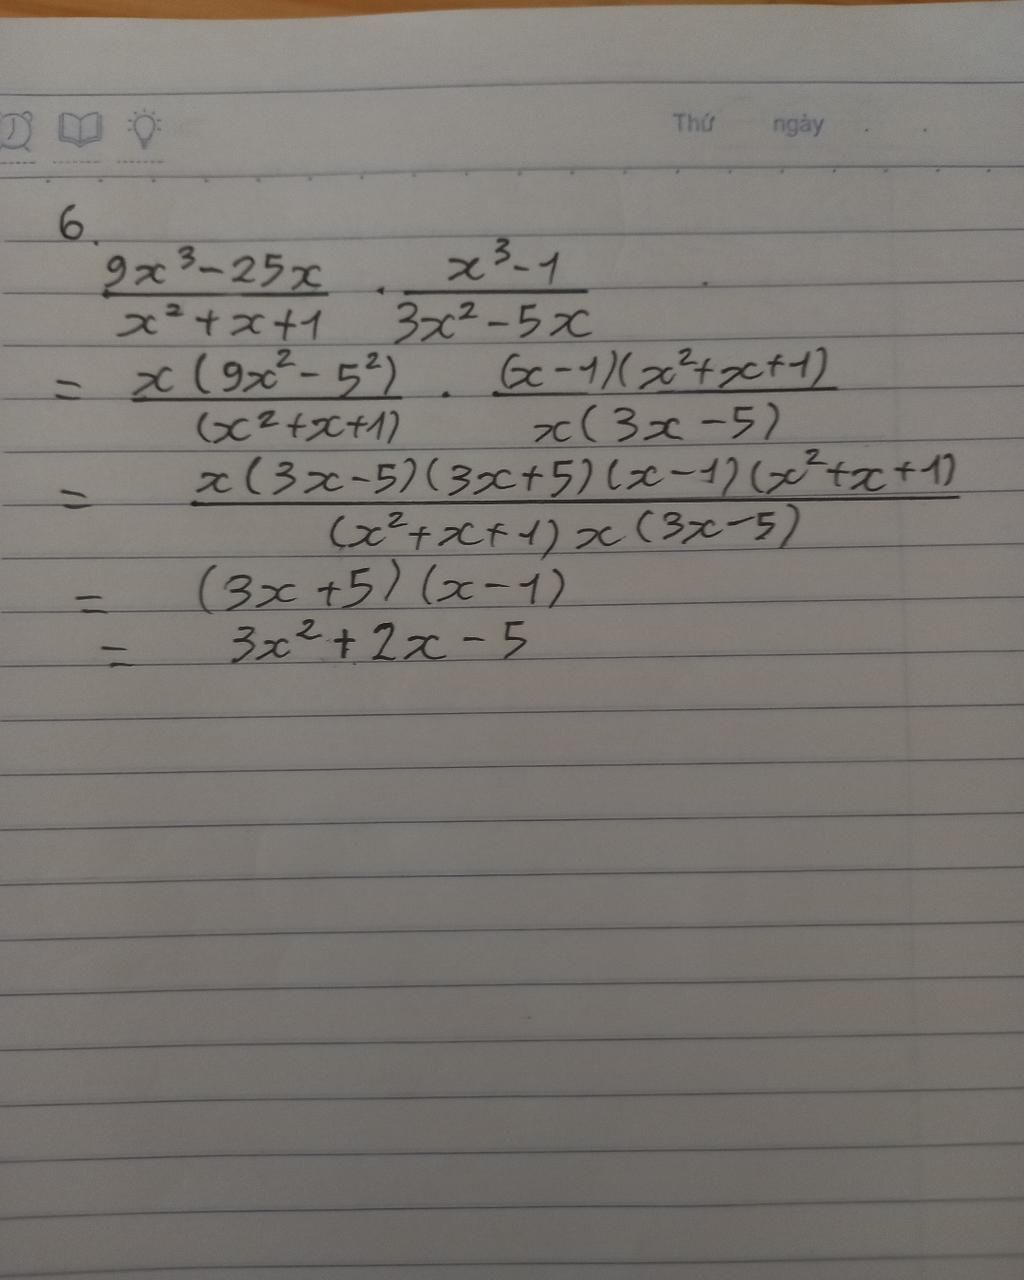 Thứ ngày . .
6.
\frac{9x^3-25x}{x^2+x+1} \cdot \frac{x^3-1}{3x^2-5x}
= \frac{x(9x^2-5^2)}{(x^2+x+1)} \cdot \frac{(x-1)(x^2+x+1)}{x(3x-5)}
= \frac{x(3x-5)(3x+5)(x-1)(x^2+x+1)}{(x^2+x+1)x(3x-5)}
= (3x+5)(x-1)
= 3x^2+2x-5